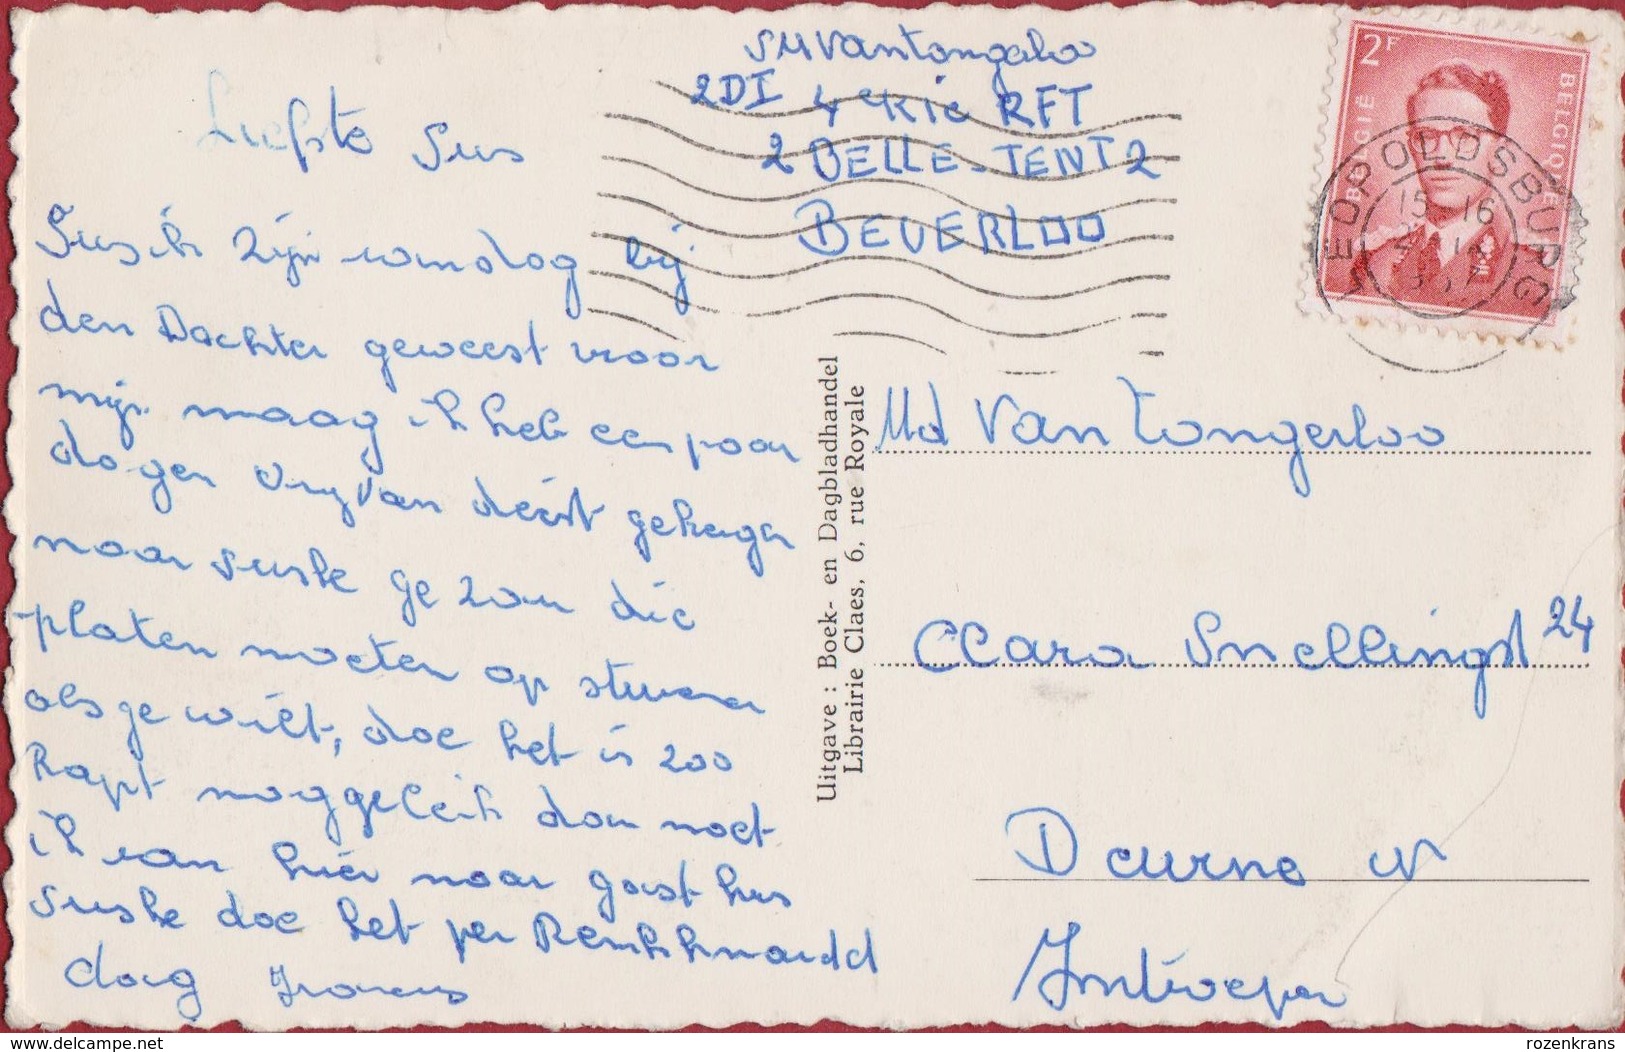 SMVantongerloo
2DI 4e Kie RFT
2 BELLE-TENT 2
BEVERLOO
Liefste Sus
Sus ik zijn vandag bij
den Dochter geweest voor
mijn maag ik heb een paar
dagen vrij van dienst gekregen
maar suske ge zou die
platen moeten op sturen
als ge wilt, doe het is 200
rapt moggeleik dan moet
ik van hier naar gasthus
suske doe het per Renkknardd
dag Frans
2F
BELGIË
BELGIQUE
LEOPOLDSBURG
15-16
Uitgave : Boek- en Dagbladhandel
Librairie Claes, 6, rue Royale
Md Van Tongerloo
Clara Snellingst 24
Deurne N
Antwerpen
delcampe.net
rozenkrans